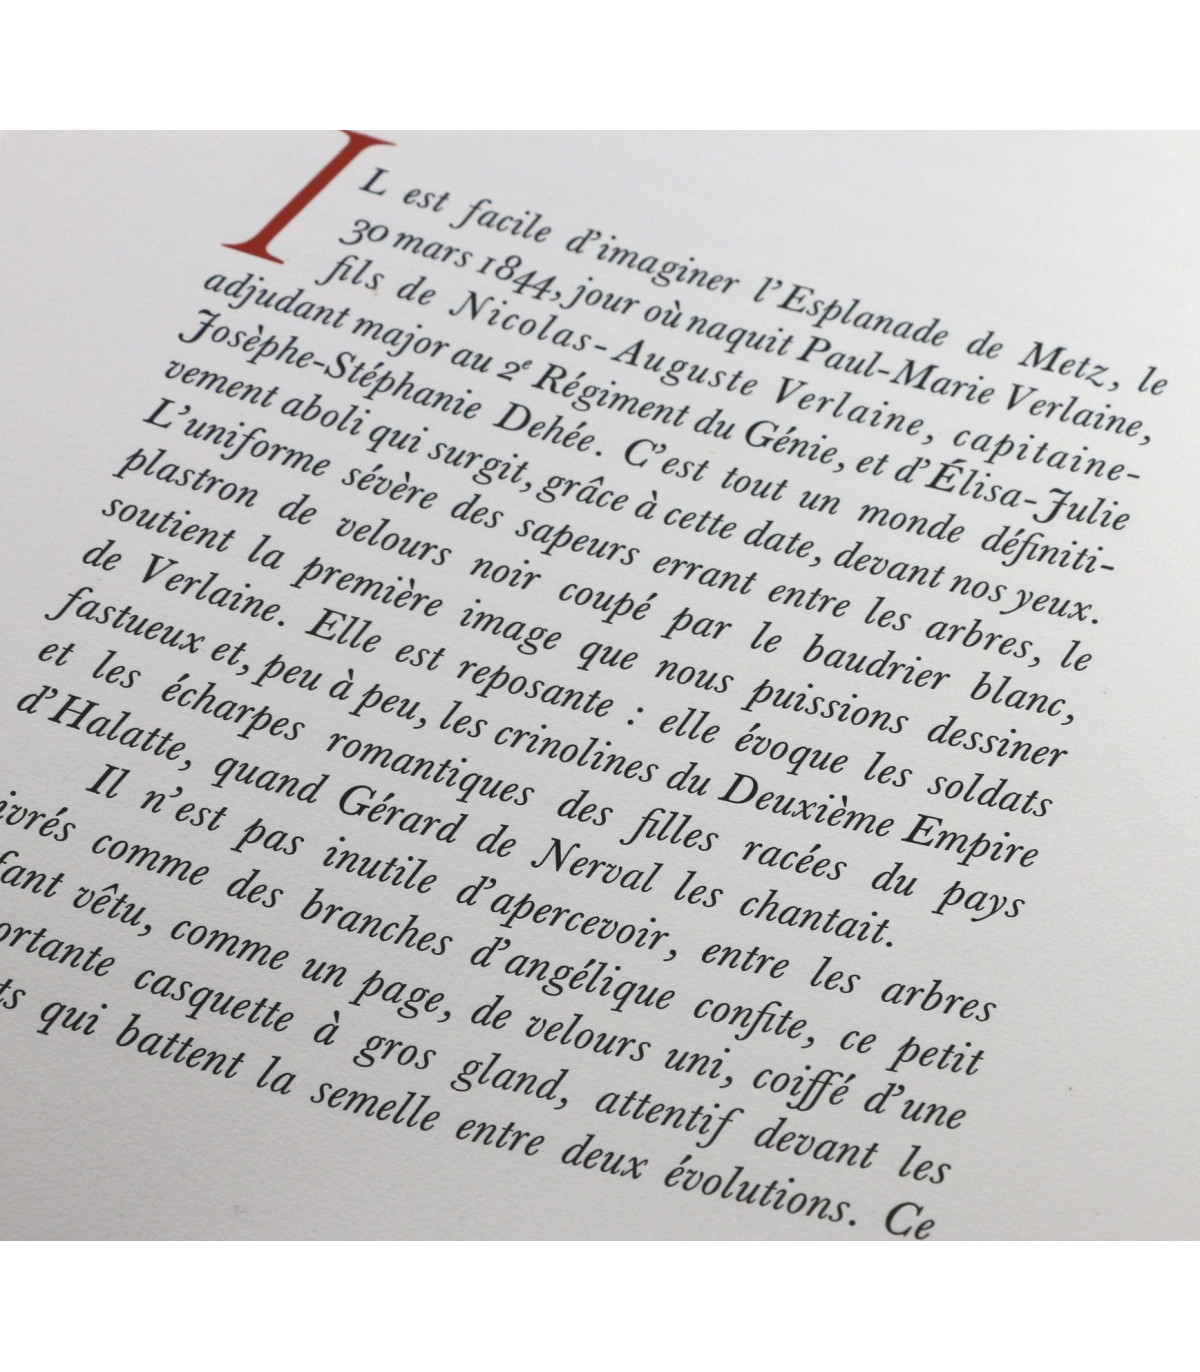 IL est facile d'imaginer l'Esplanade de Metz, le
30 mars 1844, jour où naquit Paul-Marie Verlaine,
fils de Nicolas-Auguste Verlaine, capitaine-
adjudant major au 2e Régiment du Génie, et d'Élisa-Julie
Josèphe-Stéphanie Dehée. C'est tout un monde définiti-
vement aboli qui surgit, grâce à cette date, devant nos yeux.
L'uniforme sévère des sapeurs errant entre les arbres, le
plastron de velours noir coupé par le baudrier blanc,
soutient la première image que nous puissions dessiner
de Verlaine. Elle est reposante : elle évoque les soldats
fastueux et, peu à peu, les crinolines du Deuxième Empire
et les écharpes romantiques des filles racées du pays
d'Halatte, quand Gérard de Nerval les chantait.
Il n'est pas inutile d'apercevoir, entre les arbres
ivrés comme des branches d'angélique confite, ce petit
fant vêtu, comme un page, de velours uni, coiffé d'une
ortante casquette à gros gland, attentif devant les
ts qui battent la semelle entre deux évolutions. Ce